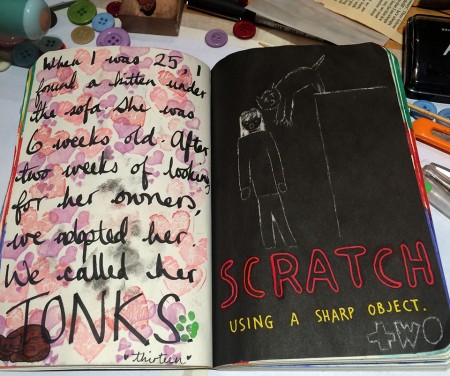 When I was 25, I
found a kitten under
the sofa. She was
6 weeks old. After
two weeks of looking
for her owners,
we adopted her.
We called her
TONKS.
thirteen
SCRATCH
USING A SHARP OBJECT.
two